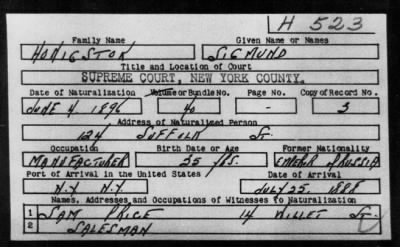 H 523
Family Name Given Name or Names
HONIGSTOK SIGMUND
Title and Location of Court
SUPREME COURT, NEW YORK COUNTY.
Date of Naturalization Volume or Bundle No. Page No. Copy of Record No.
JUNE 4, 1896 40 - 3
Address of Naturalized Person
124 SUFFOLK ST.
Occupation Birth Date or Age Former Nationality
MANUFACTURER 25 YRS. EMPEROR PRUSSIA
Port of Arrival in the United States Date of Arrival
N.Y. N.Y. JULY 25, 1888
Names, Addresses and Occupations of Witnesses to Naturalization
1 SAM PRICE 14 WILLET ST.
2 SALESMAN